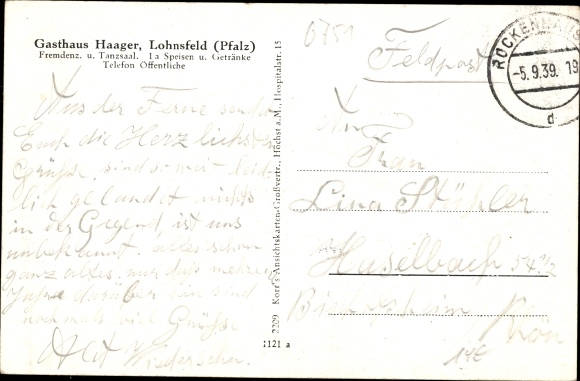 Gasthaus Haager, Lohnsfeld (Pfalz)
Fremdenz. u. Tanzsaal. Ia Speisen u. Getränke
Telefon Öffentliche
Aus der Ferne sendet
Euch die Herzlichsten
Grüße, sind so weit
gelandet nichts
in der Gegend, ist uns
unbekannt. alles schon
ganz altes. nur daß mehrere
Jahre darüber hin sind
nochmals viel Grüße
Auf Wiedersehn.
2209 Korr's Ansichtskarten-Großvertr., Höchst a.M., Hospitalstr. 15
1121 a
0751
Feldpost
ROCKENHAUS
-5.9.39. 19
d
An
Frau
Lina Stähler
Haselbach 54 1/2
Bischofsheim
Rhön
14E